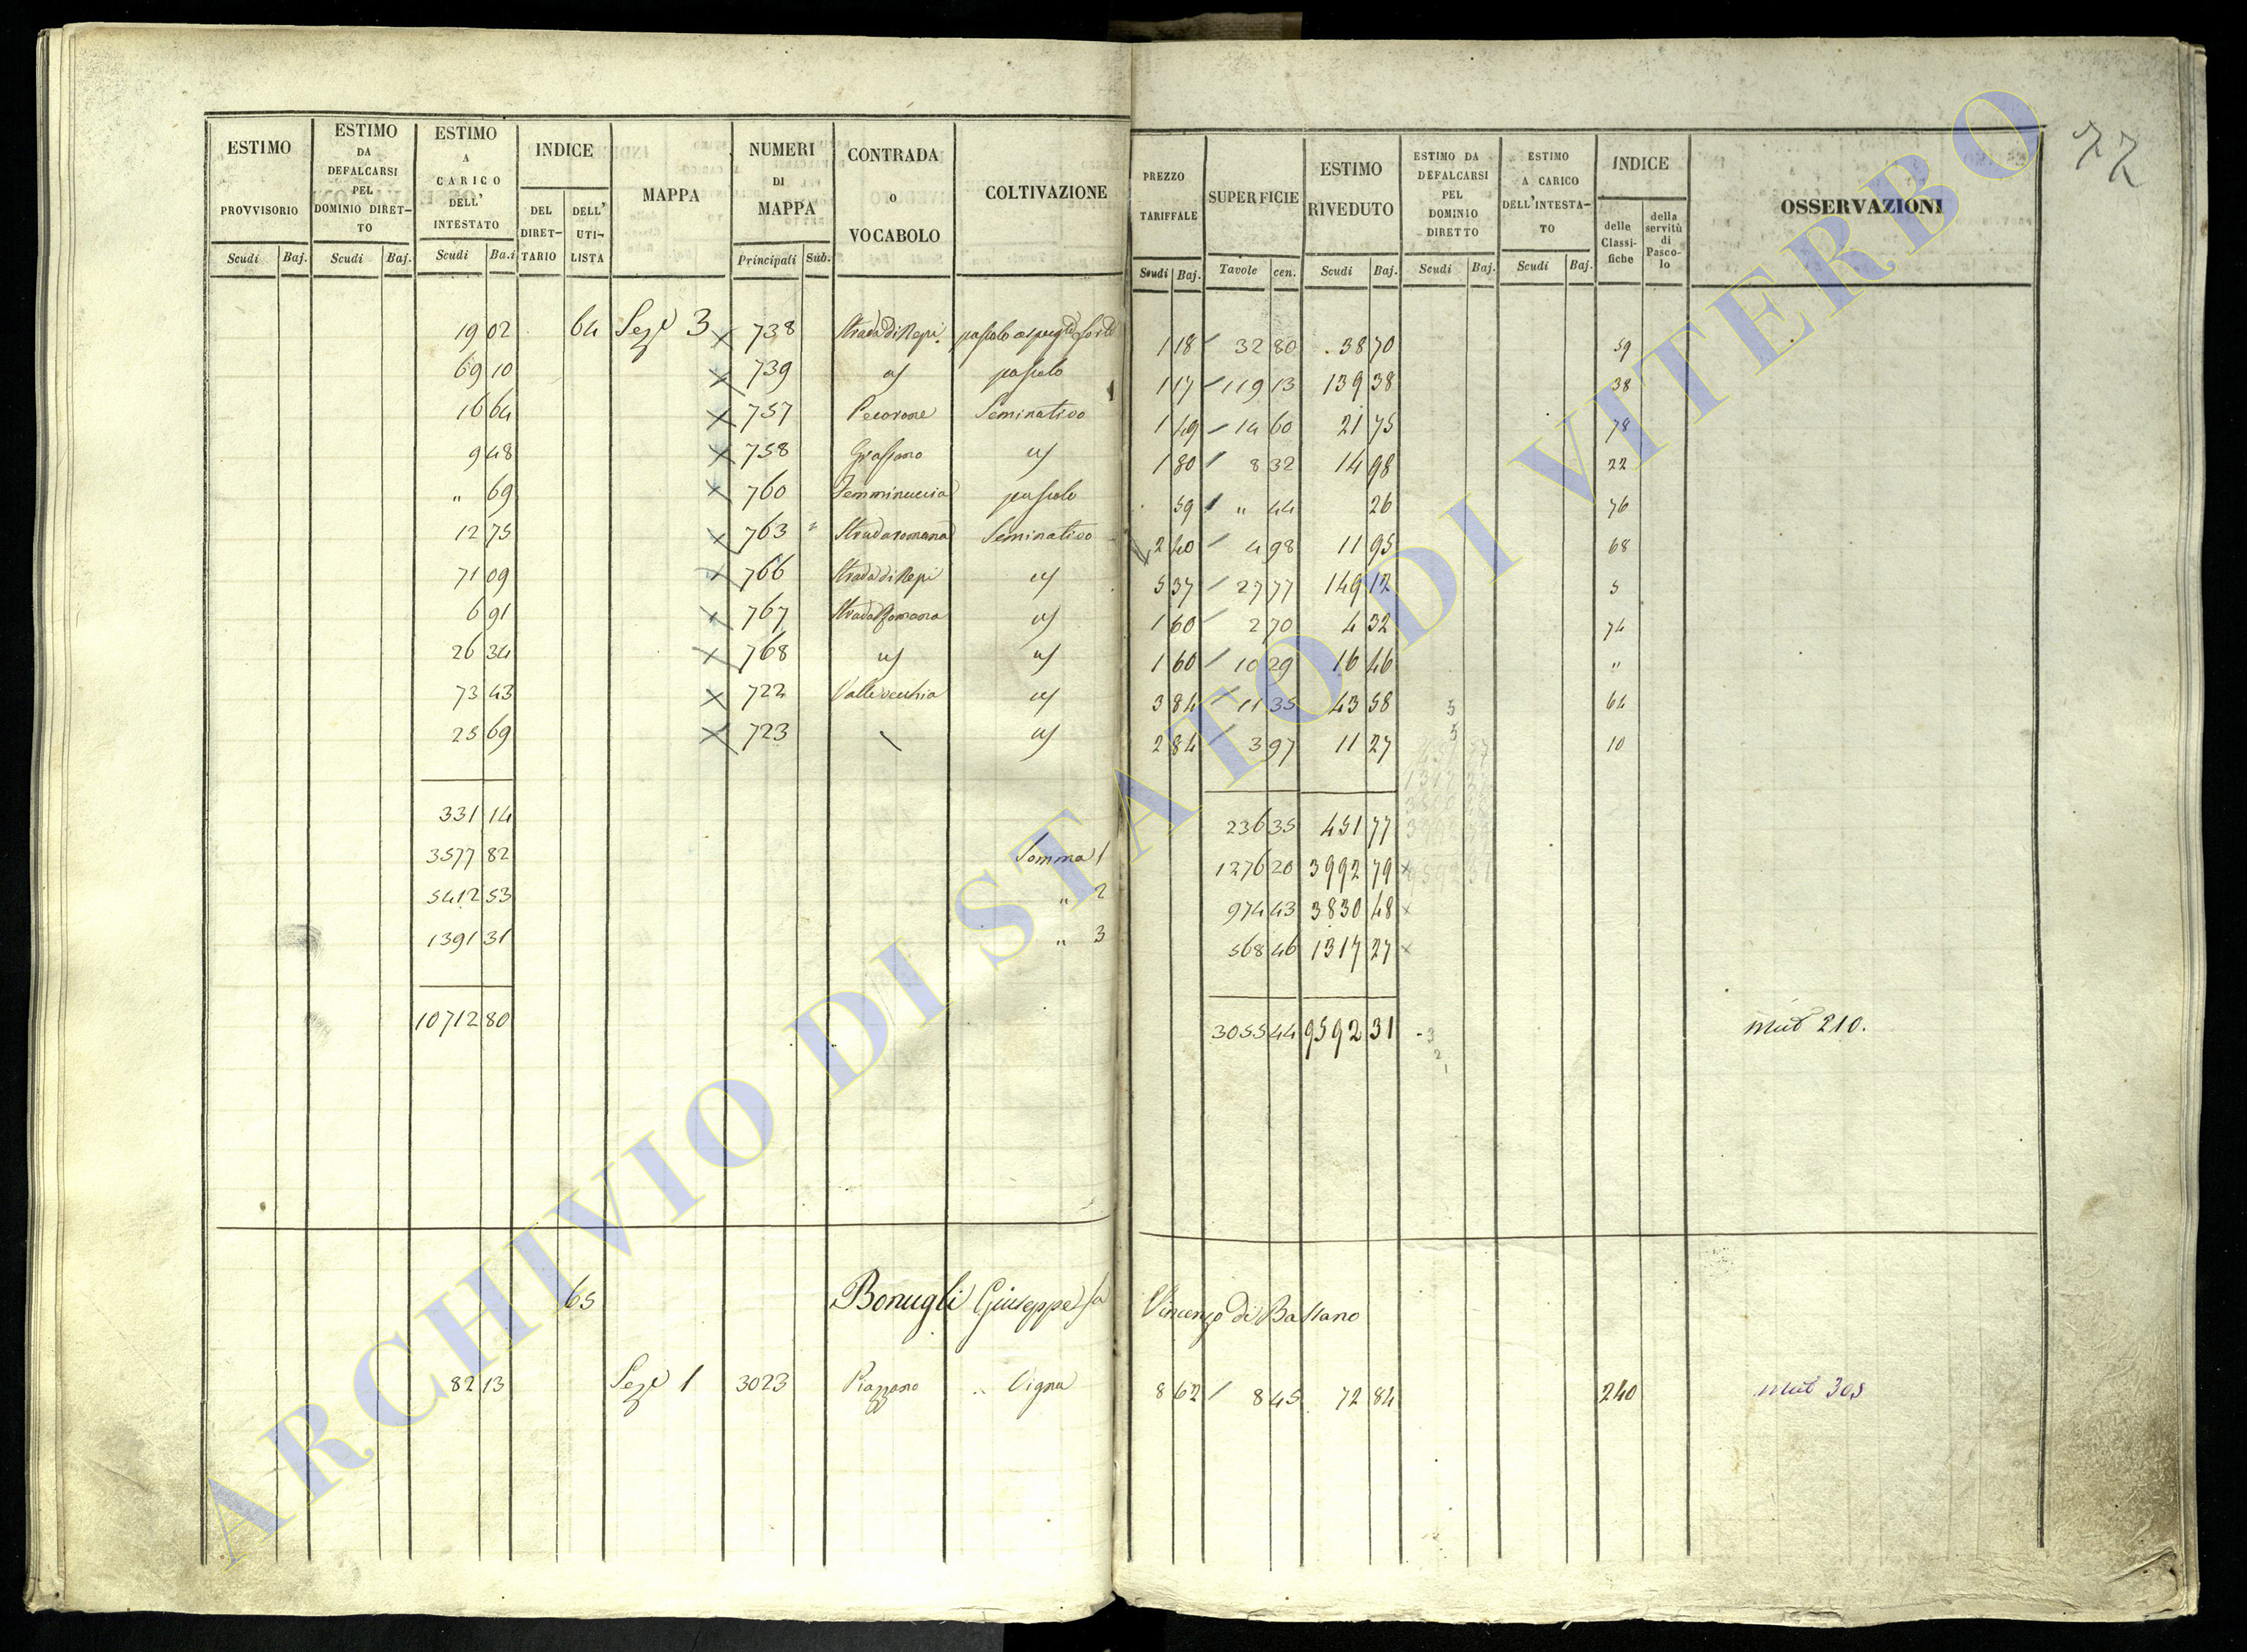 72
ESTIMO PROVVISORIO
ESTIMO DA DEFALCARSI PEL DOMINIO DIRETTO
ESTIMO A CARICO DELL' INTESTATO
INDICE
DEL DIRETTARIO
DELL' UTILISTA
MAPPA
NUMERI DI MAPPA
CONTRADA o VOCABOLO
COLTIVAZIONE
PREZZO TARIFFALE
SUPERFICIE
ESTIMO RIVEDUTO
ESTIMO DA DEFALCARSI PEL DOMINIO DIRETTO
ESTIMO A CARICO DELL'INTESTATO
INDICE
delle Classifiche
della servitù di Pascolo
OSSERVAZIONI
Scudi Baj. Scudi Baj. Scudi Ba.i Principali Sub. Scudi Baj. Tavole cen. Scudi Baj. Scudi Baj. Scudi Baj.
19 02 64 Sez.e 3 738 Strada di Nepi pascolo 1 18 32 80 38 70 59
69 10 739 id pascolo 1 17 119 13 139 38 38
16 64 757 Pecorone Seminativo 1 49 14 60 21 75 78
9 48 758 Grassano id 1 80 8 32 14 98 22
" 69 760 Femminuccia pascolo 59 " 44 26 76
12 75 763 " Strada romana Seminativo 2 40 4 98 11 95 68
71 09 766 Strada di Nepi id 5 37 27 77 149 12 5
6 91 767 Strada Romana id 1 60 2 70 4 32 74
26 34 768 id id 1 60 10 29 16 46 "
73 43 722 Valle vecchia id 3 84 11 35 43 58 64
25 69 723 id 2 84 3 97 11 27 10
331 14 236 35 451 77
3577 82 Somma 1 1276 20 3992 79
5412 53 " 2 974 43 3830 48
1391 31 " 3 568 46 1317 27
10712 80 3055 44 9592 31 mut 210.
65 Bonugli Giuseppe fu Vincenzo di Bassano
82 13 Sez.e 1 3023 Piazzano " Vigna 8 62 8 45 72 84 240 mut 305
ARCHIVIO DI STATO DI VITERBO